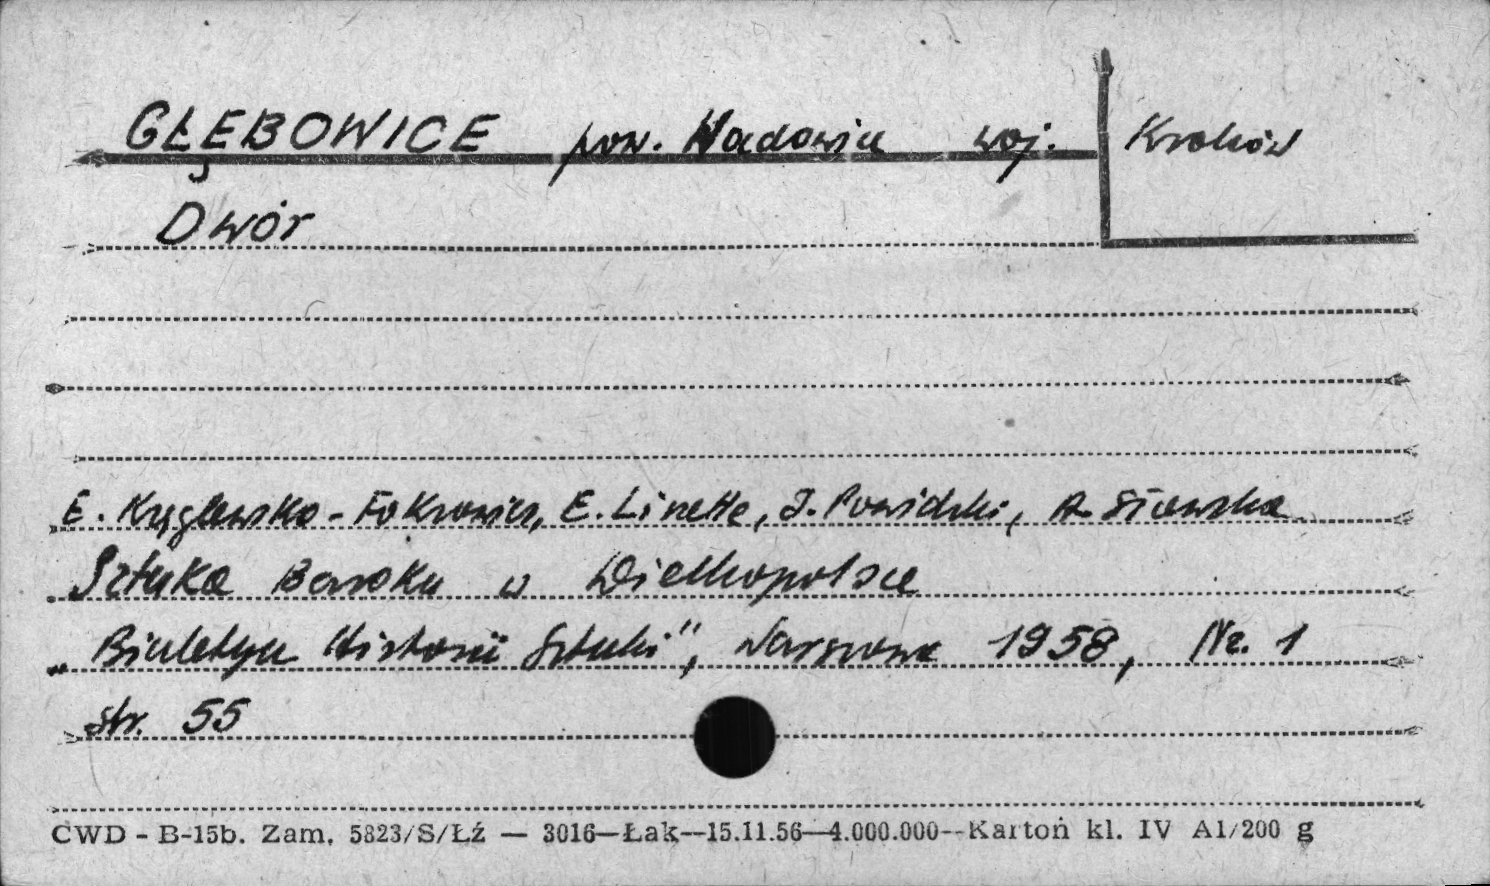 GŁĘBOWICE pow. Wadowice woj. Kraków
Dwór
E. Kręglewska-Fokrowicz, E. Linette, J. Powidzki, A. Sławska
Sztuka Baroku w Wielkopolsce
„Biuletyn Historii Sztuki", Warszawa 1958, Nr. 1
str. 55
CWD - B-15b. Zam. 5823/S/Łź — 3016—Łak—15.11.56—4.000.000--Karton kl. IV A1/200 g